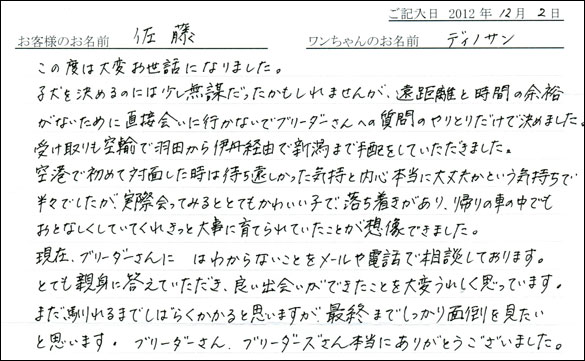 ご記入日 2012 年 12 月 2 日
お客様のお名前 佐藤 ワンちゃんのお名前 ディノサン
この度は大変お世話になりました。
子犬を決めるのには少し無謀だったかもしれませんが、遠距離と時間の余裕
がないために直接会いに行かないでブリーダーさんへの質問のやりとりだけで決めました。
受け取りも空輸で羽田から伊丹経由で新潟まで手配をしていただきました。
空港で初めて対面した時は待ち遠しかった気持と内心本当に大丈夫かという気持ちで
半々でしたが、実際会ってみるととてもかわいい子で、落ち着きがあり、帰りの車の中でも
おとなしくしていてくれきっと大事に育てられていたことが想像できました。
現在、ブリーダーさんに はわからないことをメールや電話で相談しております。
とても親身に答えていただき、良い出会いができたことを大変うれしく思っています。
まだ馴れるまでしばらくかかると思いますが、最終までしっかり面倒を見たい
と思います。 ブリーダーさん、ブリーダーズさん本当にありがとうございました。